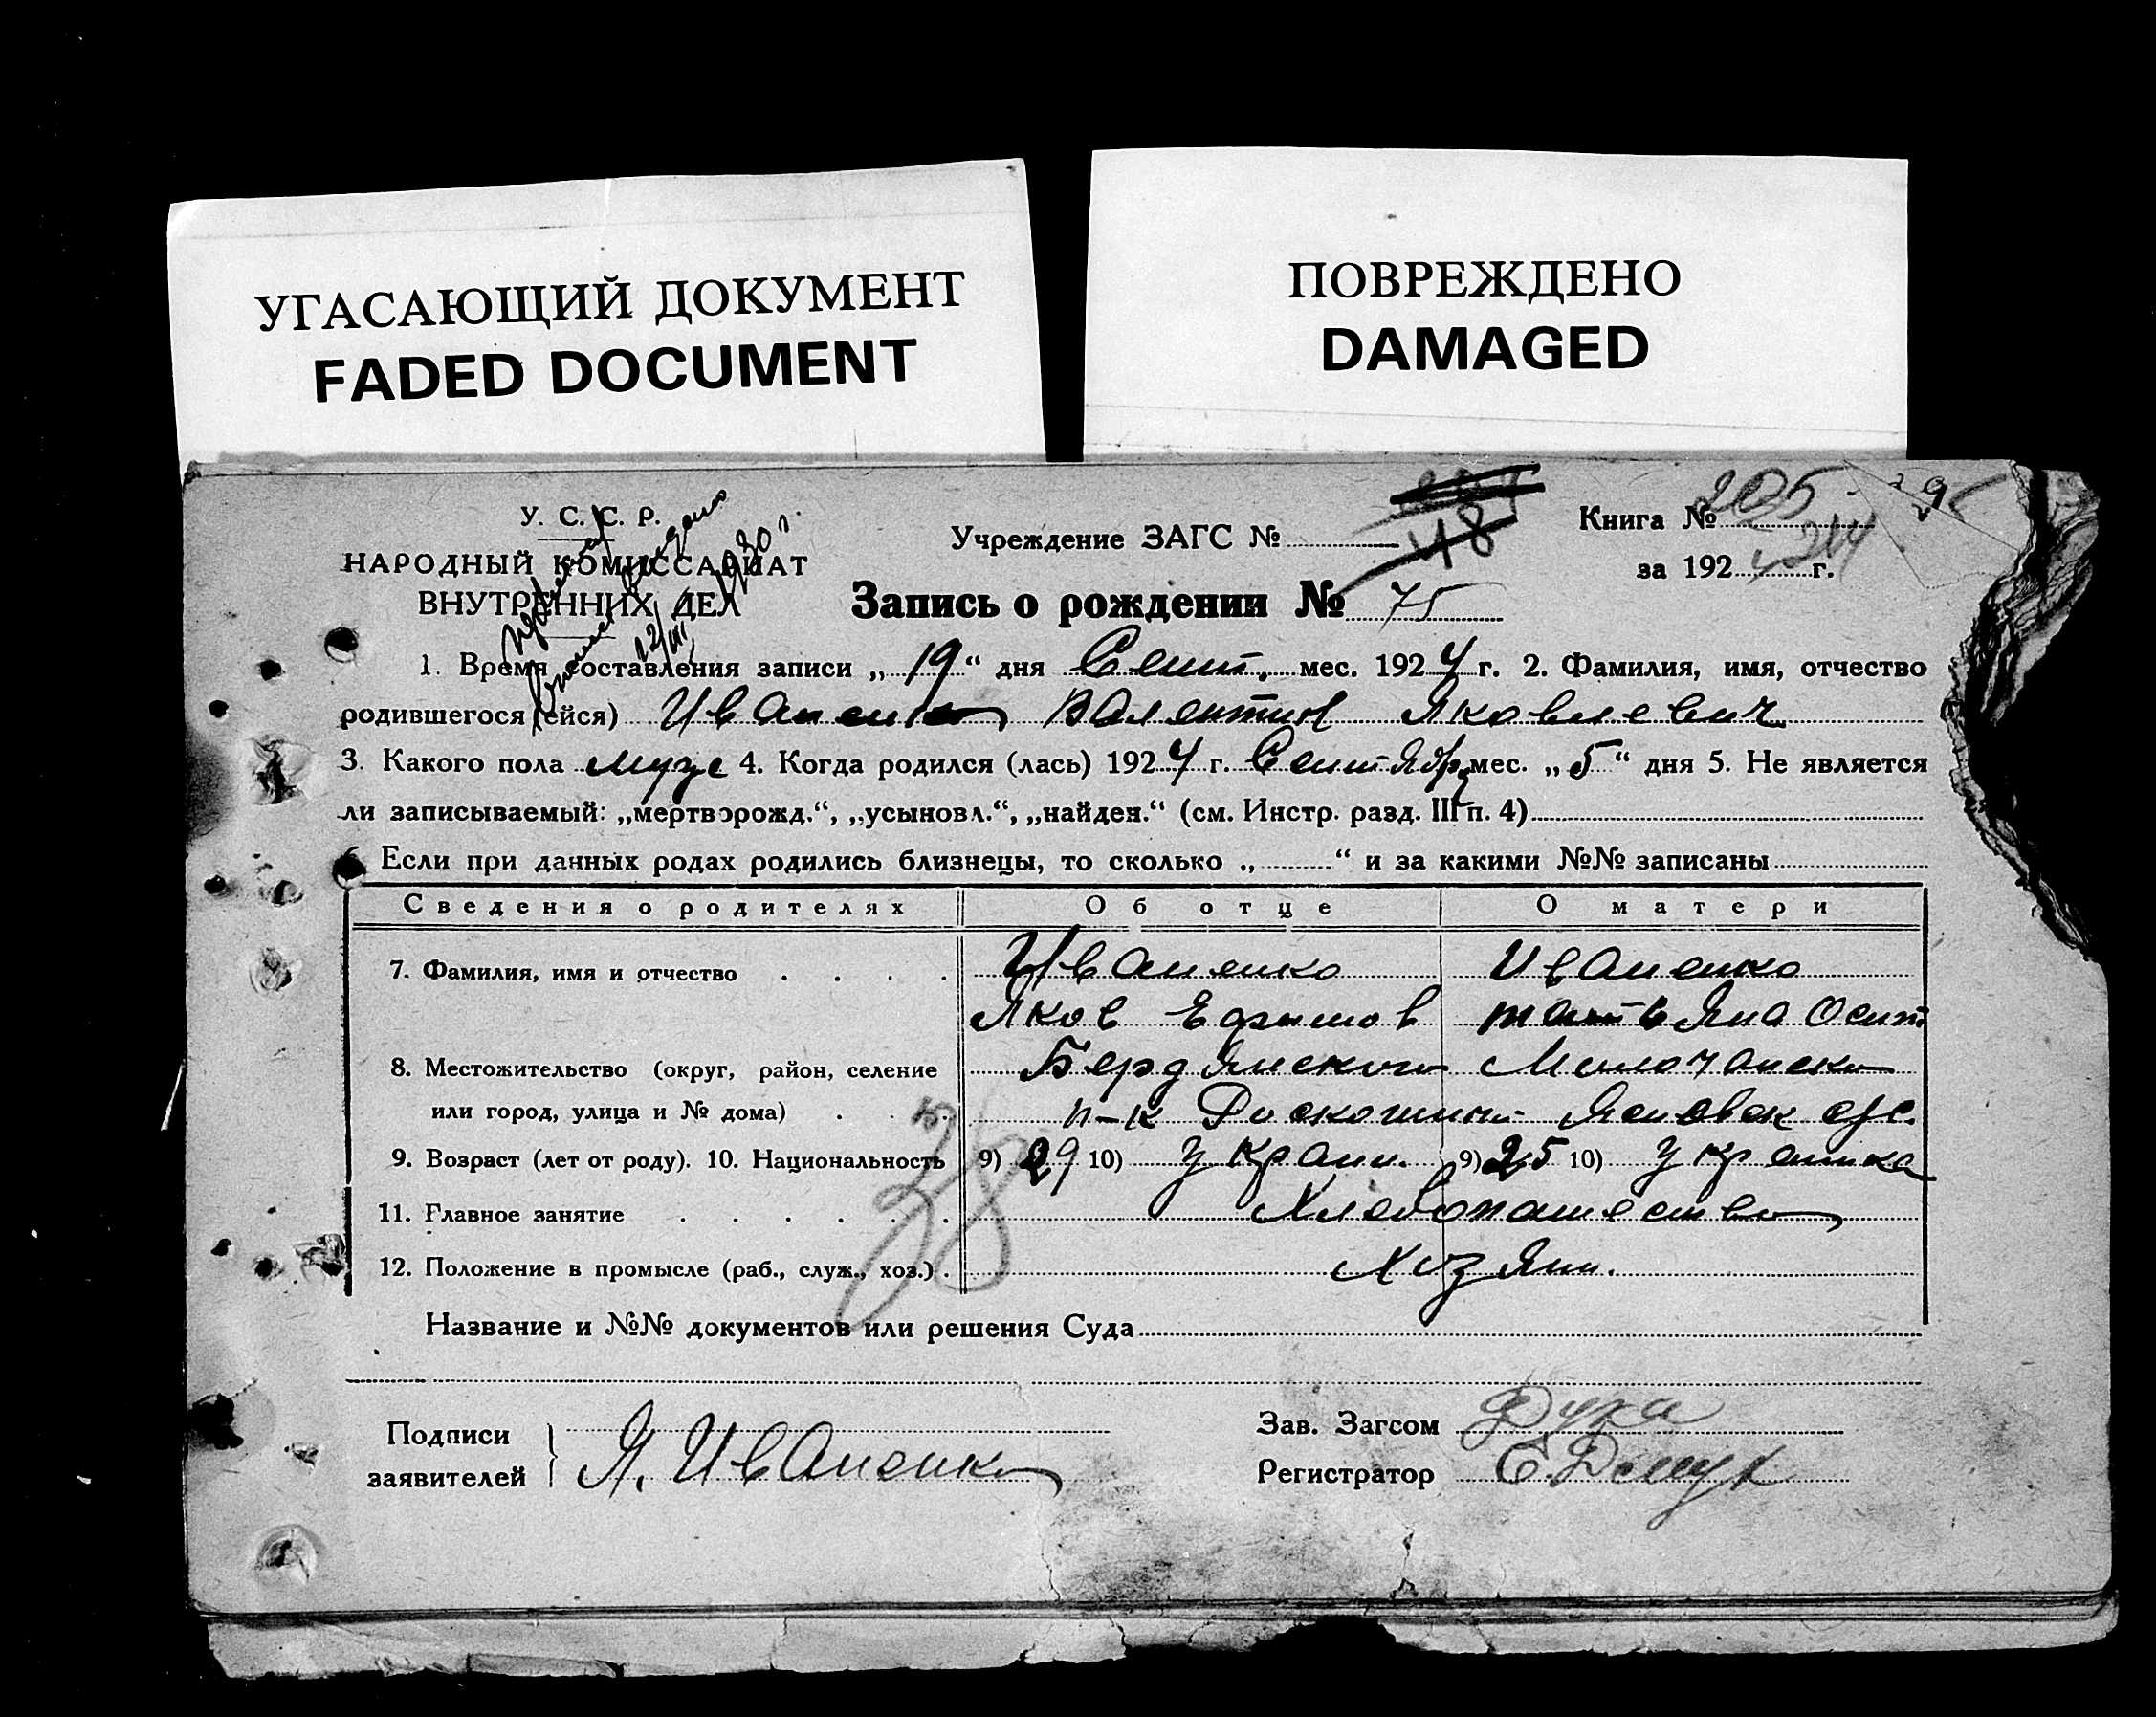 УГАСАЮЩИЙ ДОКУМЕНТ
FADED DOCUMENT
ПОВРЕЖДЕНО
DAMAGED
У. С. С. Р.
НАРОДНЫЙ КОМИССАРИАТ
ВНУТРЕННИХ ДЕЛ
12/VII 1930 г.
Учреждение ЗАГС № 48
Книга № 205
за 192 г.
Запись о рождении № 75
1. Время составления записи „19“ дня Сент. мес. 1924 г. 2. Фамилия, имя, отчество
родившегося (ейся) Иваненко Валентин Яковлевич
3. Какого пола муж 4. Когда родился (лась) 1924 г. Сентябр мес. „5“ дня 5. Не является
ли записываемый: „мертворожд.“, „усыновл.“, „найден.“ (см. Инстр. разд. III п. 4)
6. Если при данных родах родились близнецы, то сколько „ “ и за какими №№ записаны
Сведения о родителях Об отце О матери
7. Фамилия, имя и отчество Иваненко Иваненко
Яков Ефимов Татьяна Осип
8. Местожительство (округ, район, селение Бердянского Молочанско
или город, улица и № дома) п-к Роскошный
9. Возраст (лет от роду). 10. Национальность 9) 29 10) украин. 9) 25 10) украинка
11. Главное занятие Хлебопашество
12. Положение в промысле (раб., служ., хоз.) Хозяин.
38
Название и №№ документов или решения Суда
Подписи
заявителей Я. Иваненко
Зав. Загсом
Регистратор